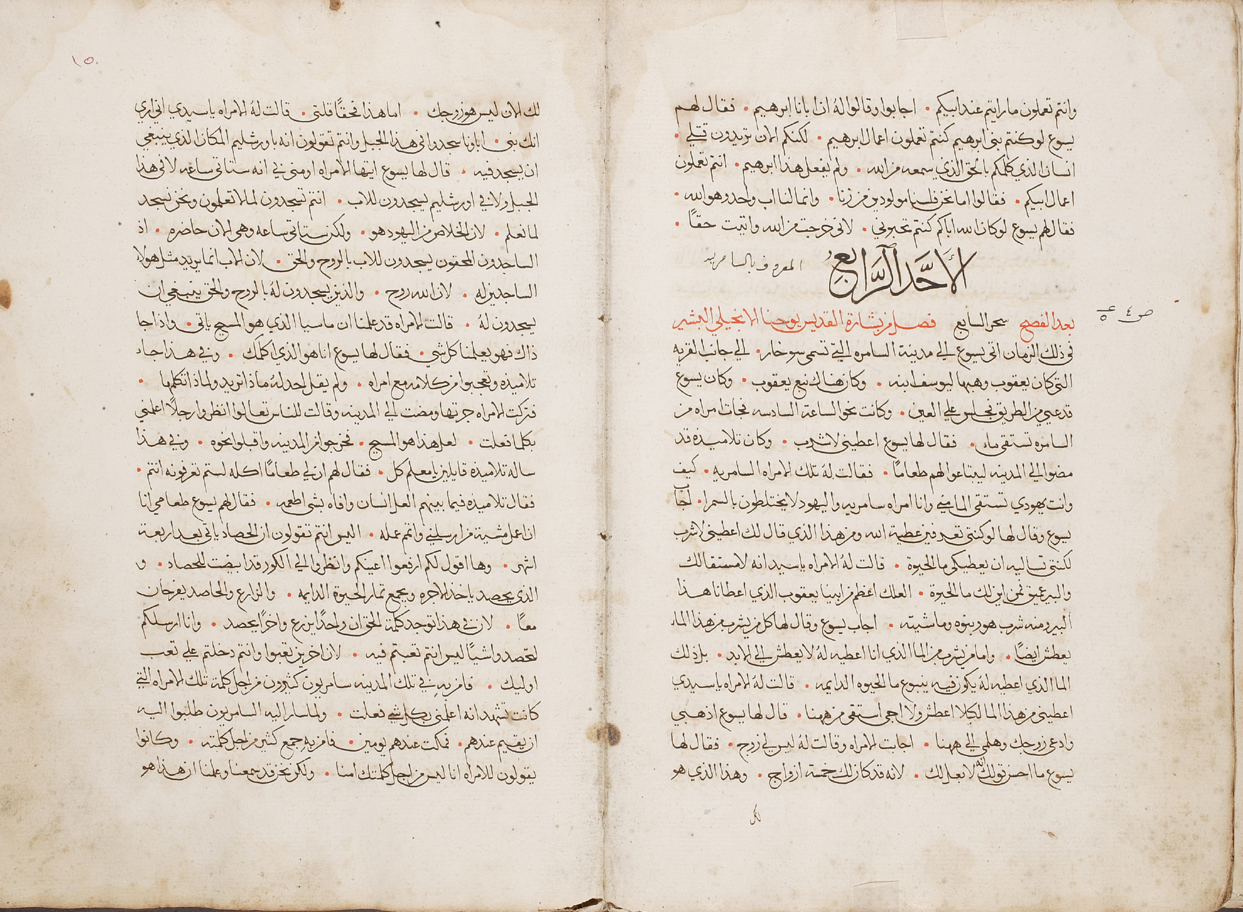 وانتم تعملون ما رايتم عند ابيكم • اجابوا وقالوا له ان ابانا ابرهيم • فقال لهم
يسوع لو كنتم بنى ابرهيم كنتم تعملون اعمال ابرهيم • لكنكم الان تريدون قتلى •
انسان الذي كلمكم بالحق الذي سمعه من الله • ولم يفعل هذا ابرهيم • انتم تعملون
اعمال ابيكم • فقالوا اما نحن فلسنا مولودين من زنا • وانما لنا اب واحد وهو الله •
فقال لهم يسوع لو كان الله اباكم كنتم تحبوني • لانى خرجت من الله واتيت حقًا •
الاحد الرابع المعروف بالسامريه
بعد الفصح سحر السابع فصل من بشارة القديس يوحنا الانجيلي البشير
ص ٤ ع ٥
فى ذلك الزمان اتى يسوع الى مدينة السامره التى تسمى سوخار • الى جانب القريه
التى كان يعقوب وهبها ليوسف ابنه • وكان هناك نبع يعقوب • وكان يسوع
قد عيى من الطريق فجلس على العين • وكانت نحو الساعة السادسه فجات امراه من
السامره تستقى ماء • فقال لها يسوع اعطينى لاشرب • وكان تلاميذه قد
مضوا الى المدينه ليبتاعوا لهم طعامًا • فقالت له تلك الامراه السامريه • كيف
وانت يهودي تستقى الما منى وانا امراه سامريه واليهود لا يختلطون بالسمرا • اجاب
يسوع وقال لها لو كنتى تعرفين عطية الله ومن هذا الذي قال لك اعطينى لاشرب
لكنتى تساليه ان يعطيكى ما الحيوه • قالت له الامراه يا سيد انه لا مستقا لك
والبير عميق فمن اين لك ما الحيوة • العلك اعظم من ابينا يعقوب الذي اعطانا هذا
البير ومنه شرب هو وبنوه وماشيته • اجاب يسوع وقال لها كل من يشرب من هذا الما
يعطش ايضًا • واما من يشرب من الما الذي انا اعطيه له لا يعطش الى الابد • بل ذلك
الما الذي اعطيه له يكون فيه ينبوع ما الحيوه الدايمه • قالت له الامراه يا سيدي
اعطينى من هذا الما لكيلا اعطش ولا اجى استقى من ههنا • قال لها يسوع اذهبي
وادعى زوجك وهلمى الى ههنا • اجابت الامراه وقالت له ليس لى زوج • فقال لها
يسوع ما احسن قولك انه لا بعل لك • لانه قد كان لك خمسة ازواج • وهذا الذي هو
١٥
لك الان ليس هو زوجك • اما هذا فحقًا قلتى • قالت له الامراه يا سيدي انى اري
انك نبى • اباونا سجدوا فى هذا الجبل وانتم تقولون انه باورشليم المكان الذي ينبغى
ان يسجد فيه • قال لها يسوع ايتها الامراه اومنى بى انه ستاتى ساعه لا فى هذا
الجبل ولا فى اورشليم يسجدون للاب • انتم تسجدون لما لا تعلمون ونحن نسجد
لما نعلم • لان الخلاص من اليهود هو • ولكن ستاتى ساعه وهى الان حاضره • اذ
الساجدون المحقون يسجدون للاب بالروح والحق • لان الاب انما يريد مثل هولا
الساجدين له • لان الله روح • والذين يسجدون له بالروح والحق ينبغى ان
يسجدون له • قالت له الامراه قد علمنا ان ماسيا الذي هو المسيح ياتى • واذا جا
ذاك فهو يعلمنا كل شى • فقال لها يسوع انا هو الذي اكلمك • وفى هذا جاء
تلاميذه وتعجبوا من كلامه مع امراه • ولم يقل احد له ماذا تريد ولماذا تكلمها •
فتركت الامراه جرتها ومضت الى المدينه وقالت للناس تعالوا انظروا رجلًا اعلمنى
بكلما فعلت • لعل هذا هو المسيح • فخرجوا من المدينه واقبلوا نحوه • وفى هذا
ساله تلاميذه قايلين يا معلم كل • فقال لهم ان لى طعامًا اكله لستم تعرفونه انتم •
فقال تلاميذه فيما بينهم العل انسان وافاه بشى اطعمه • فقال لهم يسوع طعامى انا
انا اعمل مشية من ارسلنى واتمم عمله • اليس انتم تقولون ان الحصاد ياتى بعد اربعة
اشهر • وها اقول لكم ارفعوا اعينكم وانظروا الى الكور قد ابيضت للحصاد • و
الذي يحصد ياخذ الاجره ويجمع ثمار الحيوة الدايمه • والزارع والحاصد يفرحان
معًا • لان فى هذا توجد كلمة الحق ان واحدًا يزرع واخرًا يحصد • وانا ارسلكم
لتحصدوا شيًا ليس انتم تعبتم فيه • لان اخرين تعبوا وانتم دخلتم على تعب
اوليك • فامن به فى تلك المدينه سامريون كثيرون من اجل كلمة تلك الامراه التى
كانت تشهد انه اعلمنى بكل شى فعلت • ولما سار اليه السامريون طلبوا اليه
ان يقيم عندهم • فمكث عندهم يومين • فامن به جمع كثير من اجل كلمته • وكانوا
يقولون للامراه انا ليس من اجل كلمتك امنا • ولكن نحن قد سمعنا وعلمنا ان هذا هو